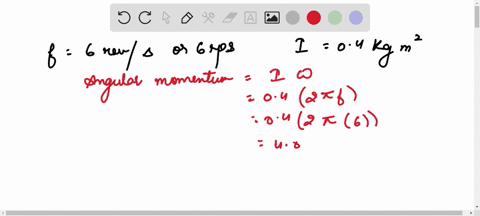 f = 6 rev/s or 6 rps I = 0.4 Kg m²
Angular momentum = I ω
= 0.4 (2πf)
= 0.4 (2π (6))
= 4.0